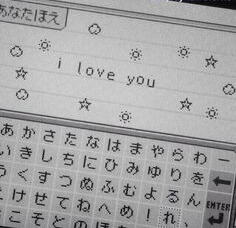 あなたほえ
i love you
あかさたなはまやらわー
いきしちにひみゆりを
うくすつぬふむよるん ENTER
えけせてねへめ！れ、
こそとの